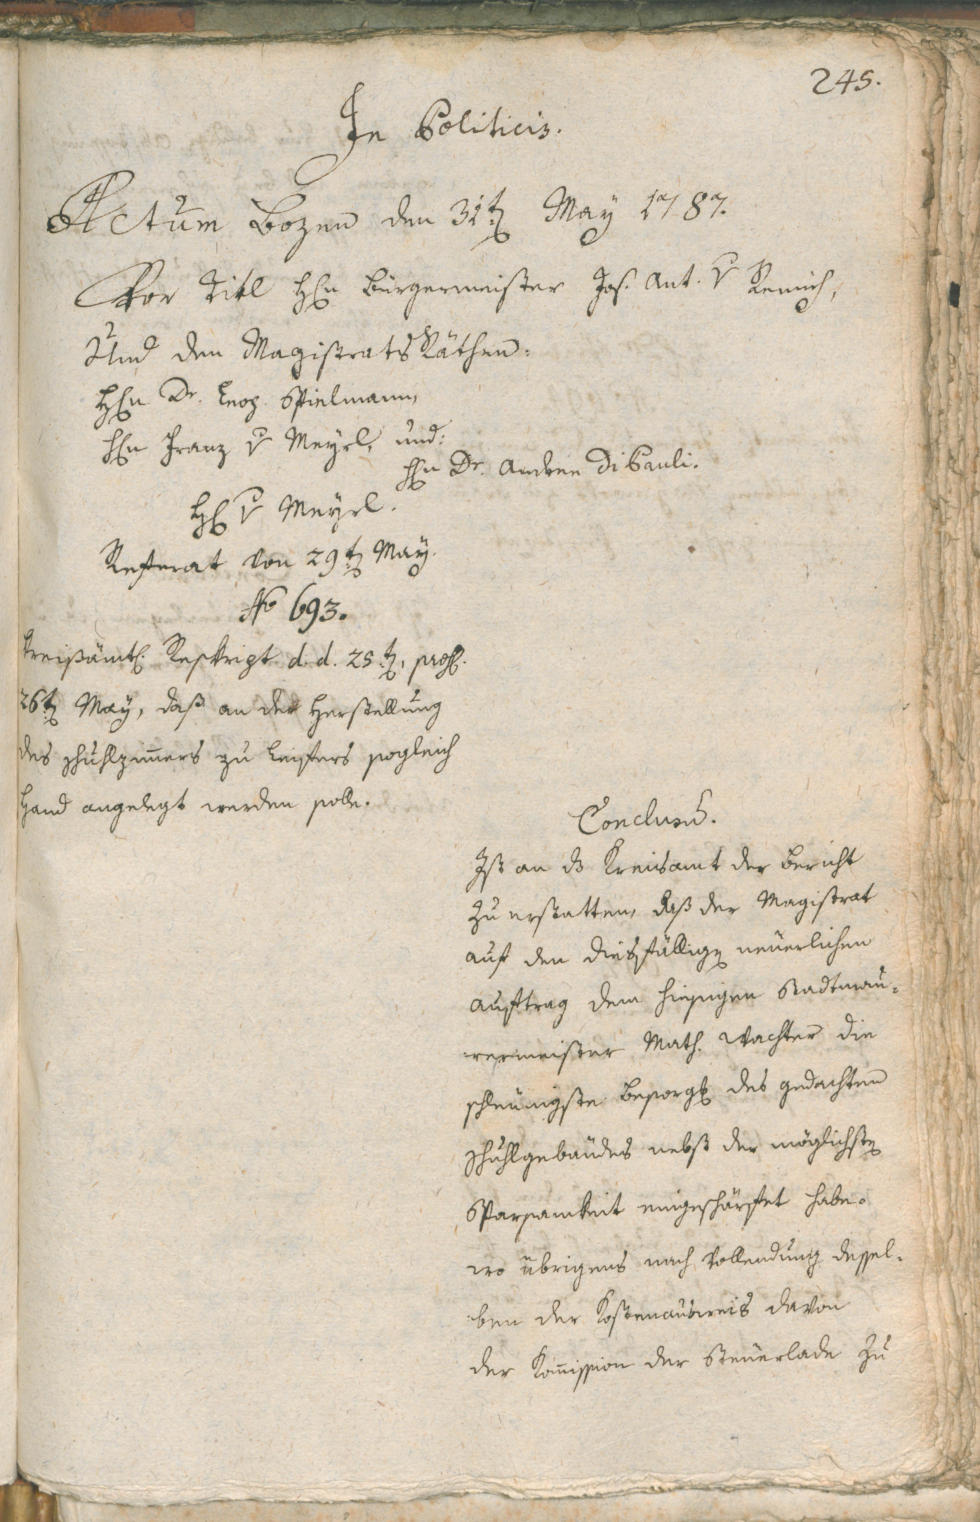 245.
In Politicis.
Actum Bozen den 31t May 1787.
Vor Titl Hn Bürgermeister Jos. Ant. v Remich,
Und den Magistrats Räthen:
Hn Dr. Leop. Spielmann,
Hn Franz v Meyrl, und:
Hn Dr. Andree Di Pauli.
H v Meyrl.
Referat von 29t May.
No 693.
Kreißämtl. Reskript d. d. 25t, pros.
26t May, daß an der Herstellung
des Schuhlzimmers zu Leifers sogleich
Hand angelegt werden solle.
Conclusū.
Ist an ds Kreisamt der Bericht
zu erstatten, daß der Magistrat
auf den diesfällig neuerlichen
Auftrag dem hiesigen Stadtmau-
rermeister Math. Wachter die
schleunigste Besorgg des gedachten
Schuhlgebäudes nebst der möglichst
Sparsamkeit eingeschärfet habe.
wo übrigens nach Vollendung dessel-
ben der Kostenausweis davon
der Kom̄ission der Steuerlade zu